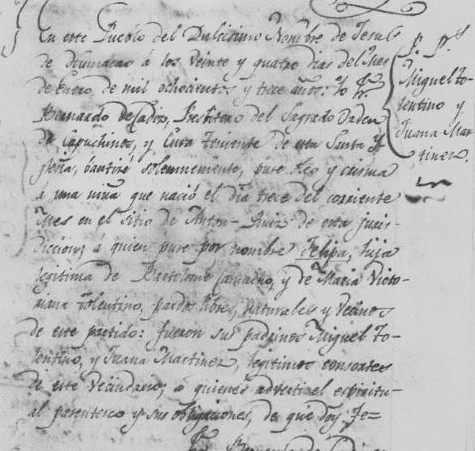 En este Pueblo del Dulcisimo Nombre de Jesus
de Humacao á los veinte y quatro dias del Mes
de Enero de mil ochocientos y trece años: Yo Fr.
Bernardo de Cadiz, Presbitero del Sagrado Orden
de Capuchinos, y Cura Teniente de esta Santa Y
glesia, bautizé solemnemente, puse óleo y crisma
á una niña que nació el dia trece del corriente
Mes en el sitio de Anton-Ruiz de esta juris-
diccion; á quien puse por nombre Felipa, hija
legitima de Bartolomé Camacho, y de Maria Victo-
riana Tolentino, pardos libres, naturales y vecinos
de este partido: fueron sus padrinos Miguel To-
lentino, y Juana Martinez, legitimos consortes
de este Vecindario; á quienes advertí el espiritu-
al parentesco y sus obligaciones, de que doy Fe=
Fr. Bernardo de Cadiz
P. Ps.
Miguel To-
lentino y
Juana Mar-
tinez.